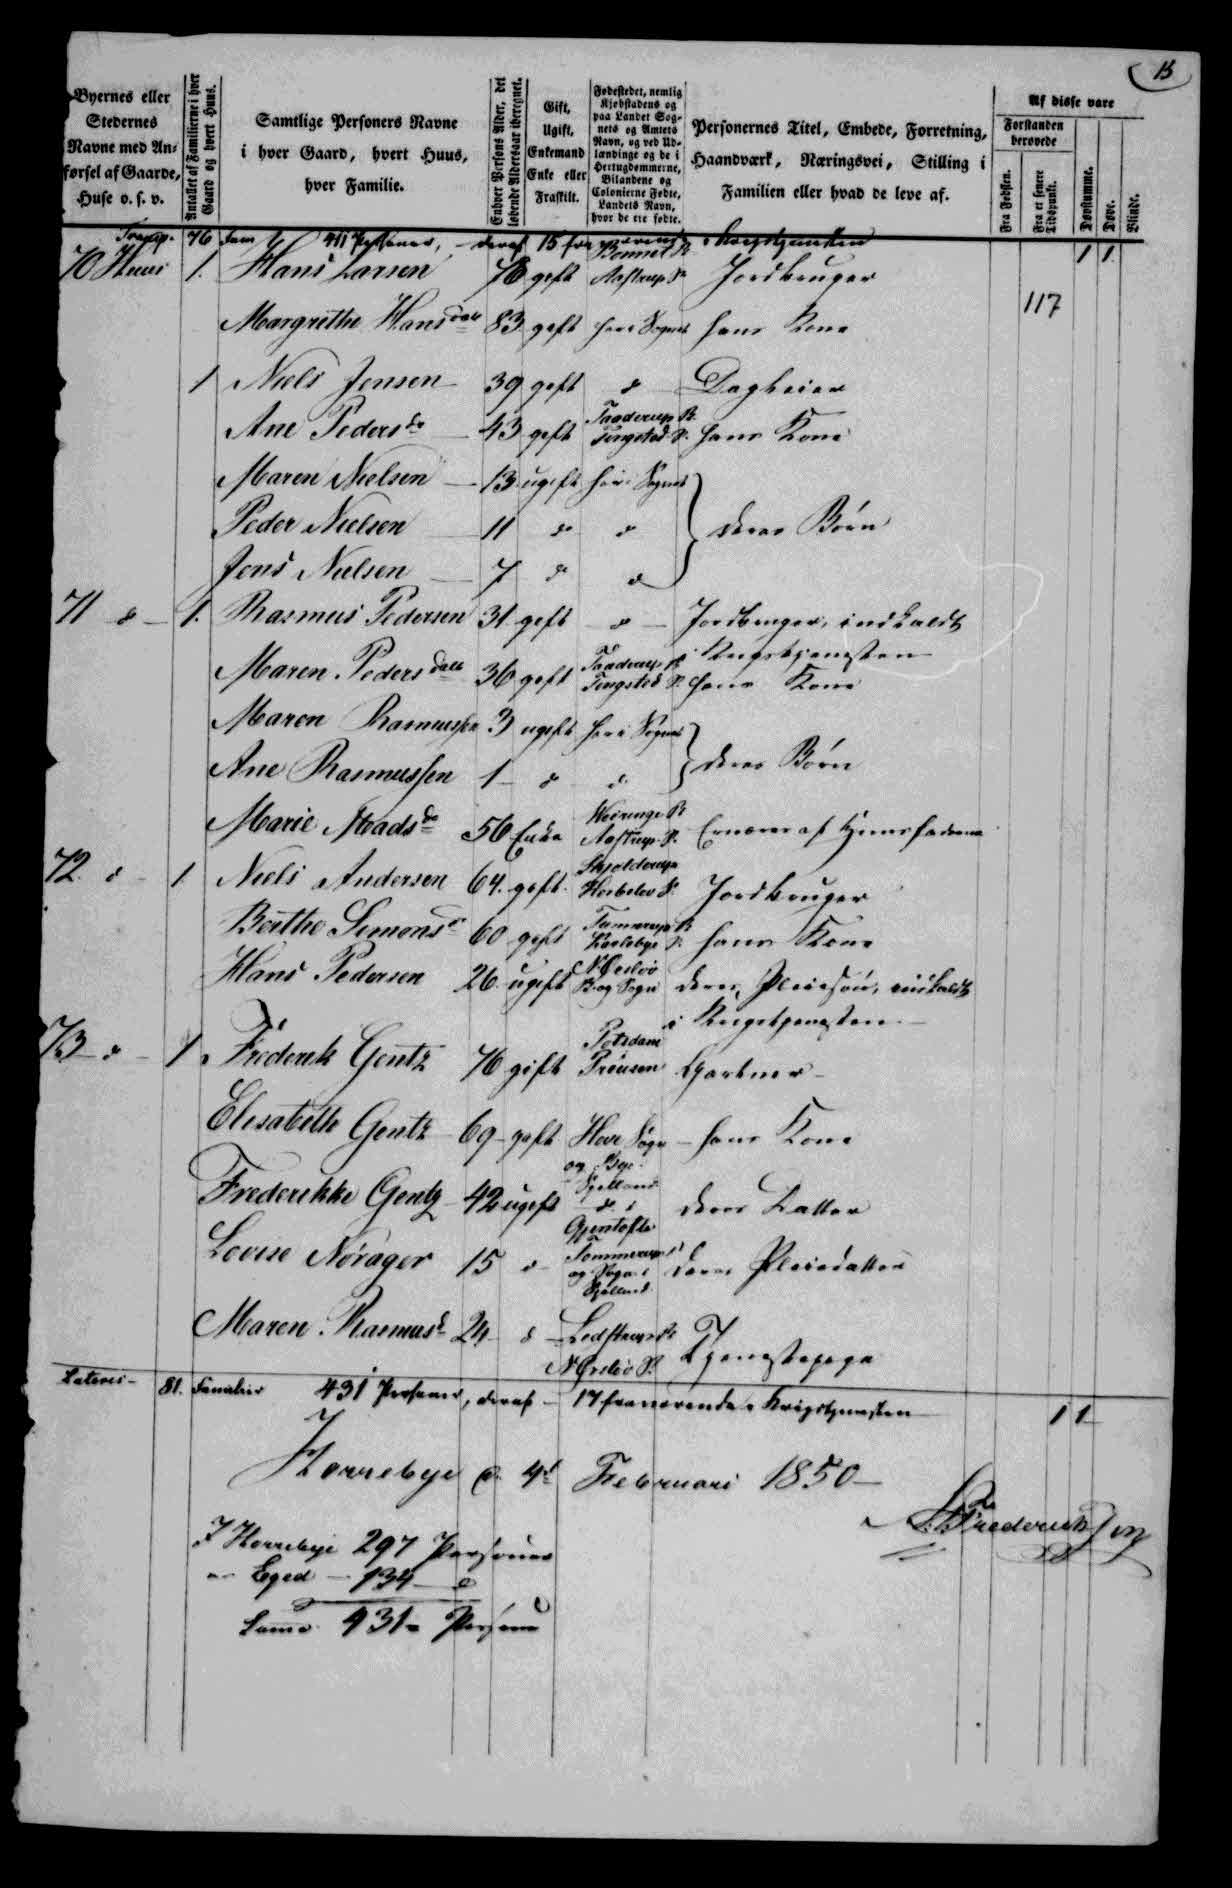 15
Byernes eller Stedernes Navne med Anførsel af Gaarde, Huse o. s. v.
Antallet af Familierne i hver Gaard og hvert Huus.
Samtlige Personers Navne i hver Gaard, hvert Huus, hver Familie.
Enhver Persons Alder, det løbende Aldersaar iberegnet.
Gift, Ugift, Enkemand Enke eller Fraskilt.
Fødestedet, nemlig Kjøbstadens og paa Landet Sognets og Amtets Navn, og ved Udlændinge og de i Hertugdømmerne, Bilandene og Colonierne Fødte, Landets Navn, hvor de ere fødte.
Personernes Titel, Embede, Forretning, Haandværk, Næringsvei, Stilling i Familien eller hvad de leve af.
Af disse vare
Forstanden berøvede
Fra Fødslen.
Fra et senere Tidspunkt.
Døvstumme.
Døve.
Blinde.
Transp. 76 Fam 411 Personer, deraf 15 fraværende i Krigstjenesten 1 1
70 Huus 1. Hans Larsen 76 gift Bonnet B. Aastrup S. Jordbruger
117
Margrethe Hansdatt 83 gift her i Sognet hans Kone
1 Niels Jensen 39 gift do Dagleier
Ane Pedersdr 43 gift Taaderup B. Tingsted S. hans Kone
Maren Nielsen 13 ugift her i Sognet
Peder Nielsen 11 do do deres Børn
Jens Nielsen 7 do do
71 do 1. Rasmus Pedersen 31 gift do Jordbruger, indkaldt
i Krigstjenesten
Maren Pedersdatt 36 gift Taaderup B. Tingsted S. hans Kone
Maren Rasmussen 3 ugift her i Sognet
Ane Rasmussen 1 do do deres Børn
Marie Madsdr 56 Enke Weiringe B. Aastrup S. Ernærer af Huusfaderen
72 do 1. Niels Andersen 64 gift Skjolderup Horbelev S. Jordbruger
Birthe Simonsdr 60 gift Karleby S. hans Kone
Hans Pedersen 26 ugift N. Ørslev B og Sogn deres Pleiesøn, indkaldt
i Krigstjenesten
73 do 1. Frederik Gentz 76 gift Potsdam Preusen Gartner
Elisabeth Gentz 69 gift Sogn og Bye Sjelland hans Kone
Frederikke Gentz 42 ugift do i Gjentofte deres Datter
Lovise Nørager 15 do Tommerup og Sogn i Sjelland deres Pleiedatter
Maren Rasmusd 24 do N. Ørslev S. Tjenestepige
Lateris 81. Familier 431 Personer, deraf 17 fraværende i Krigstjenesten 1 1
Horrebye d. 4d Februari 1850
Frederiksen
I Horrebye 297 Personer
Eged 134 do
Summa 431 Personer